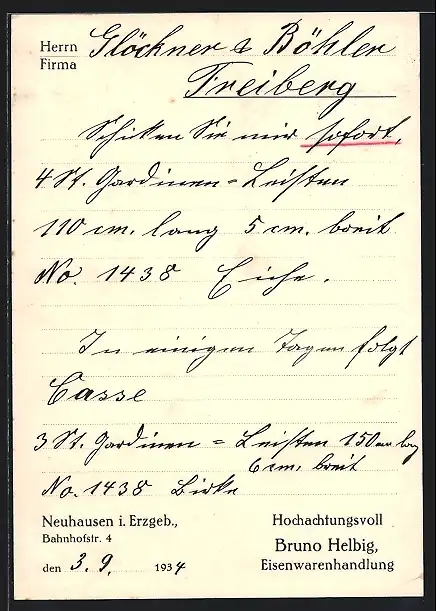 Herrn
Firma
Glöckner & Böhler
Freiberg
Schicken Sie mir sofort,
4 St. Gardinen = Leisten
110 cm. lang 5 cm. breit
No. 1438 Eiche.
In einigen Tagen folgt
Casse
3 St. Gardinen = Leisten 150 cm lang
6 cm. breit
No. 1438 Birke
Neuhausen i. Erzgeb.,
Bahnhofstr. 4
den 3. 9. 1934
Hochachtungsvoll
Bruno Helbig,
Eisenwarenhandlung